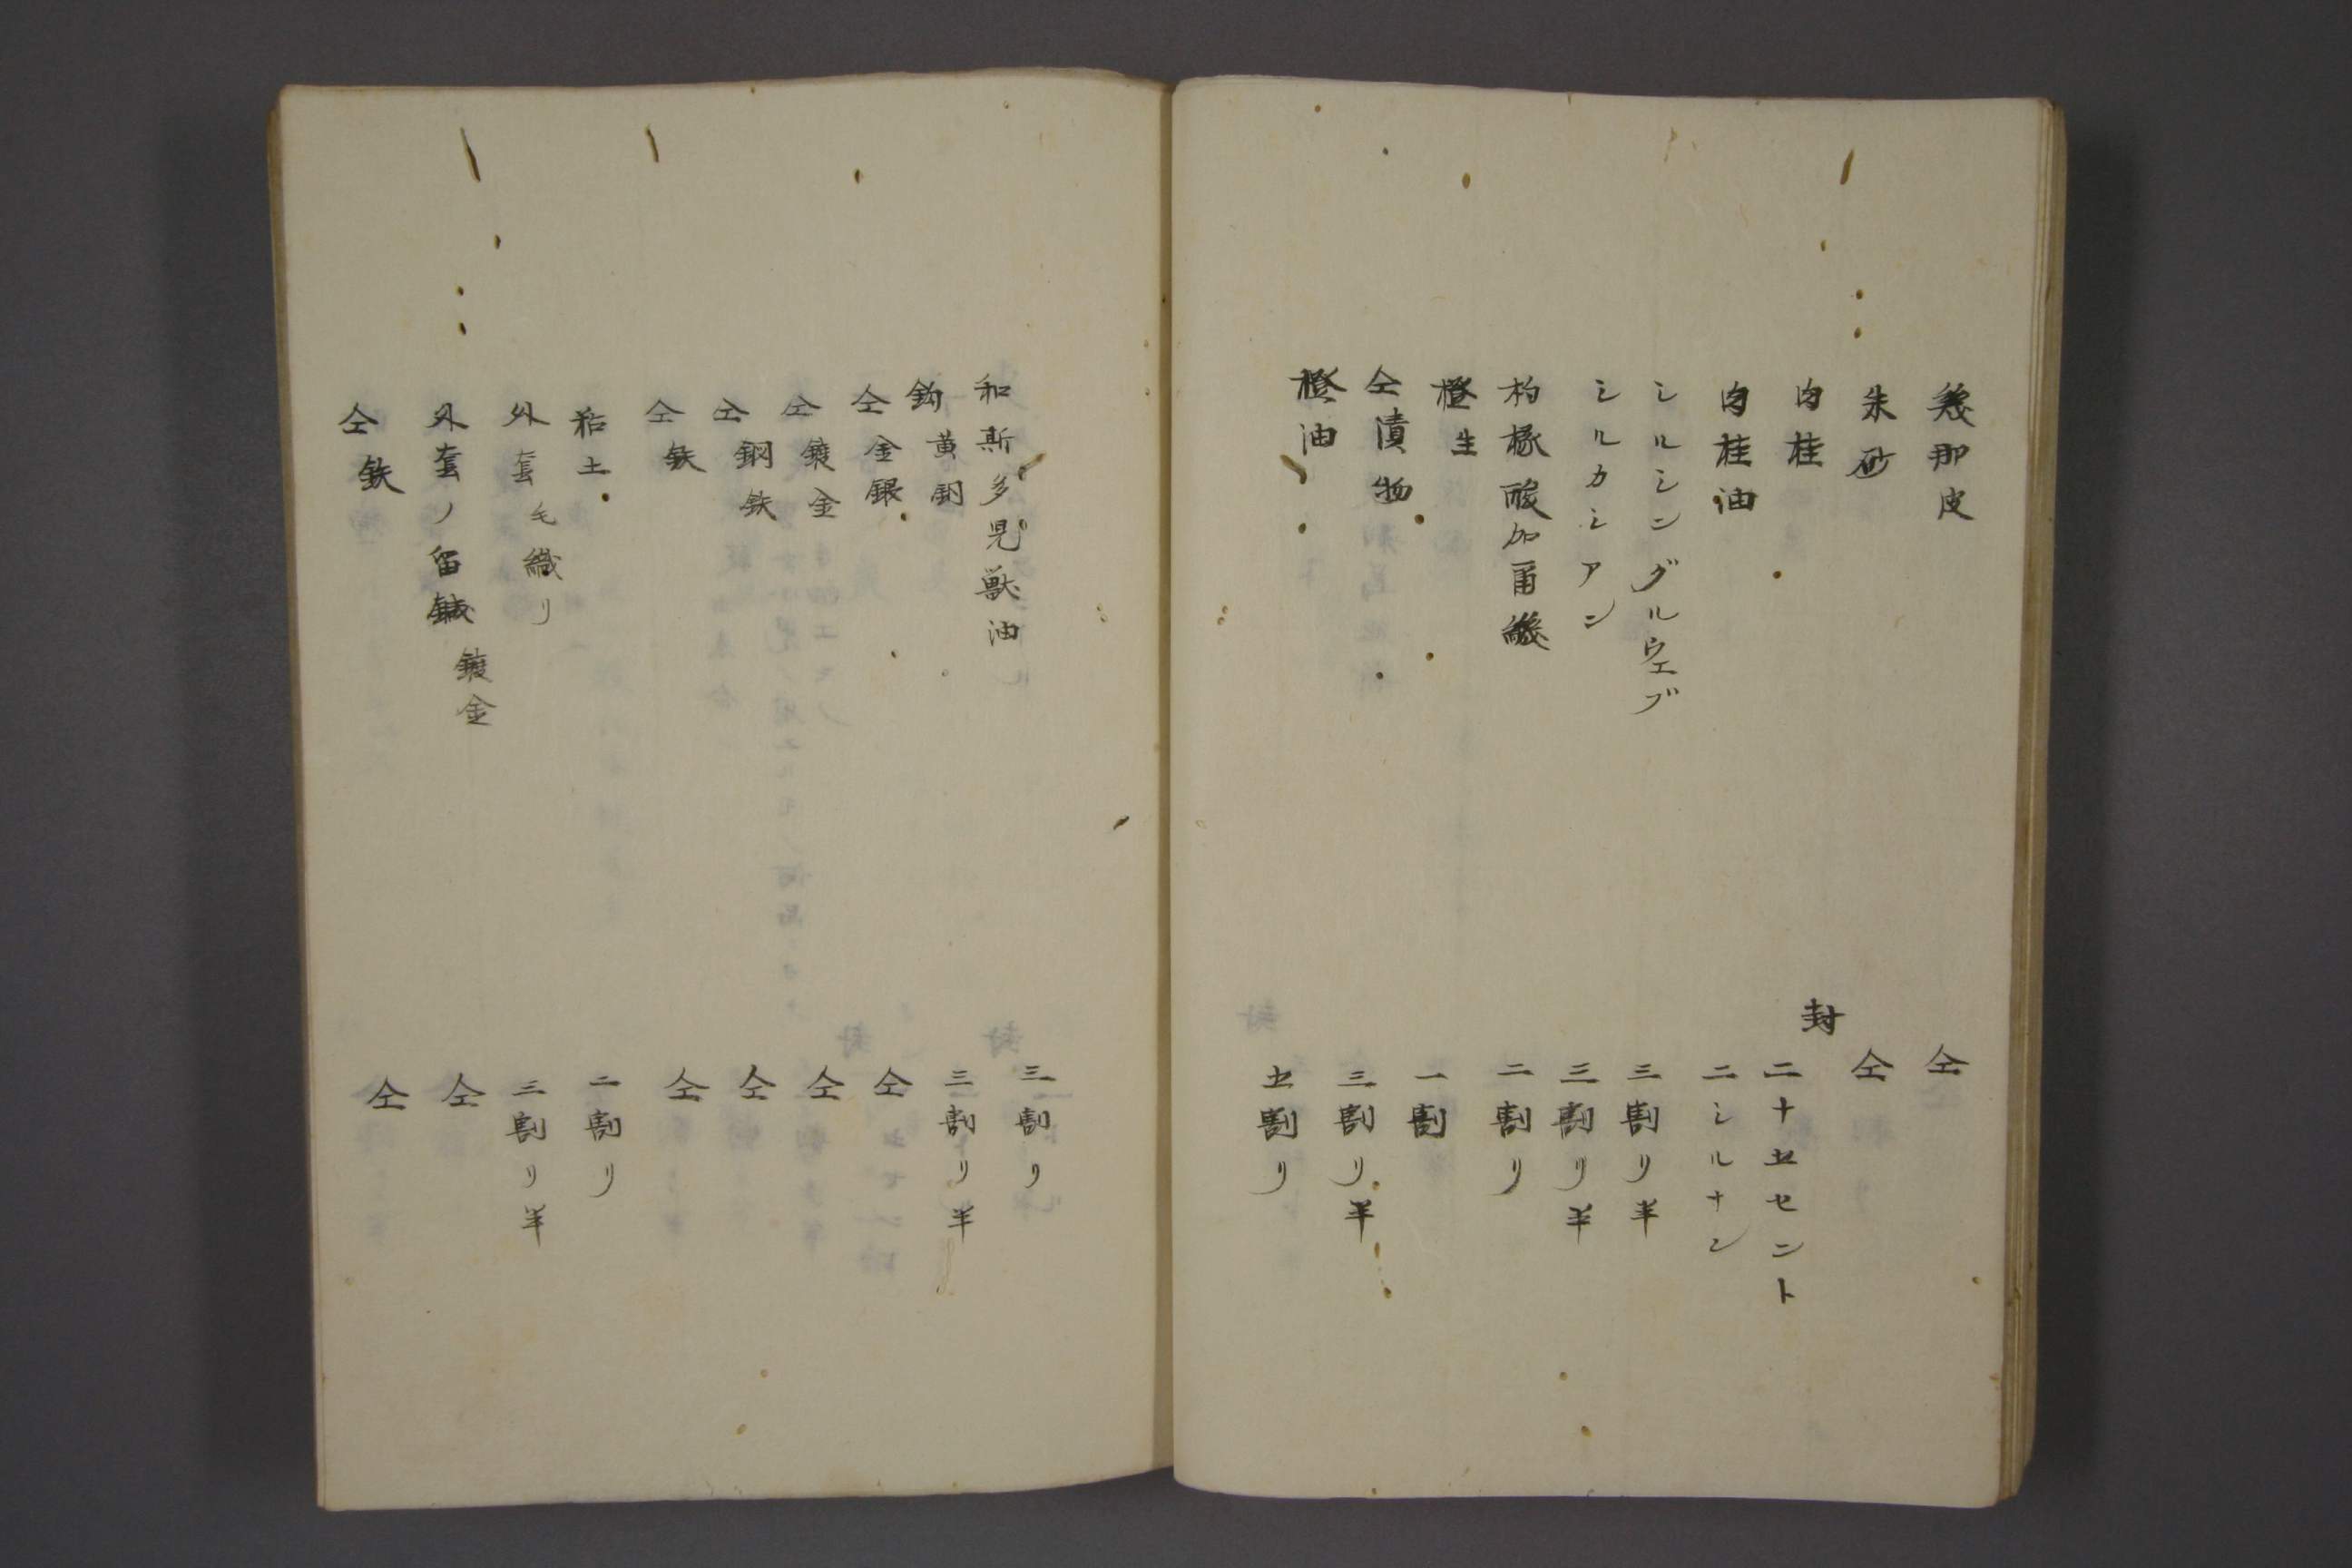 幾那皮 仝
朱砂 仝
肉桂 封 二十五セント
肉桂油 二シルナン
シルシングルウエブ 三割り半
シルカシアン 三割り半
枸櫞酸加爾幾 二割り
橙生 一割
仝漬物 三割り半
橙油 五割り
和斯多児獣油 三割り
鈎黄銅 三割り半
仝金銀 仝
仝鍍金 仝
仝鋼鉄 仝
仝鉄 仝
粘土 二割り
外套毛織り 三割り半
外套ノ留鍼鍍金 仝
仝鉄 仝